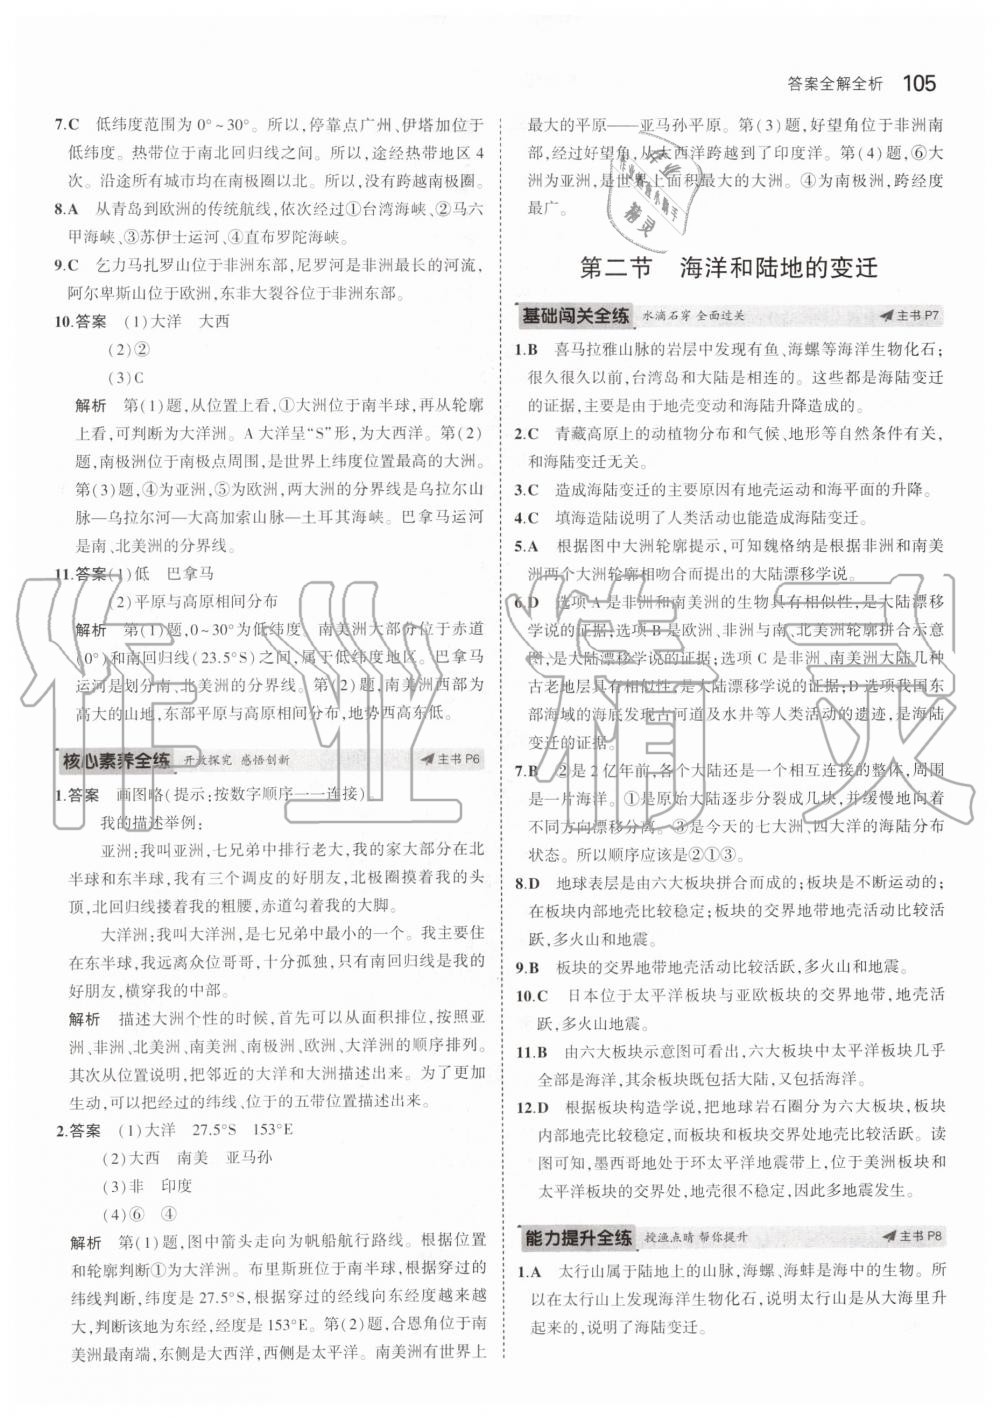 答案全解全析 105
7.C 低纬度范围为0°~30°。所以,停靠点广州、伊塔加位于
低纬度。热带位于南北回归线之间。所以,途经热带地区4
次。沿途所有城市均在南极圈以北。所以,没有跨越南极圈。
8.A 从青岛到欧洲的传统航线,依次经过①台湾海峡、②马六
甲海峡、③苏伊士运河、④直布罗陀海峡。
9.C 乞力马扎罗山位于非洲东部,尼罗河是非洲最长的河流,
阿尔卑斯山位于欧洲,东非大裂谷位于非洲东部。
10.答案 (1)大洋 大西
(2)②
(3)C
解析 第(1)题,从位置上看,①大洲位于南半球,再从轮廓
上看,可判断为大洋洲。A大洋呈“S”形,为大西洋。第(2)
题,南极洲位于南极点周围,是世界上纬度位置最高的大洲。
第(3)题,④为亚洲,⑤为欧洲,两大洲的分界线是乌拉尔山
脉—乌拉尔河—大高加索山脉—土耳其海峡。巴拿马运河
是南、北美洲的分界线。
11.答案(1)低 巴拿马
(2)平原与高原相间分布
解析 第(1)题,0~30°为低纬度 南美洲大部分位于赤道
(0°)和南回归线(23.5°S)之间,属于低纬地区。巴拿马
运河是划分南、北美洲的分界线。第(2)题,南美洲西部为
高大的山地,东部平原与高原相间分布,地势西高东低。
核心素养全练 开放探究 感悟创新 主书P6
1.答案 画图略(提示:按数字顺序一一连接)
我的描述举例:
亚洲:我叫亚洲,七兄弟中排行老大,我的家大部分在北
半球和东半球,我有三个调皮的好朋友,北极圈摸着我的头
顶,北回归线搂着我的粗腰,赤道勾着我的大脚。
大洋洲:我叫大洋洲,是七兄弟中最小的一个。我主要住
在东半球,远远离众位哥哥,十分孤独,只有南回归线是我的
好朋友,横穿我的中部。
解析 描述大洲个性的时候,首先可以从面积排位,按照亚
洲、非洲、北美洲、南美洲、南极洲、欧洲、大洋洲的顺序排列。
其次从位置说明,把邻近的大洋和大洲描述出来。为了更加
生动,可以把经过的纬线、位于的五带位置描述出来。
2.答案 (1)大洋 27.5°S 153°E
(2)大西 南美 亚马孙
(3)非 印度
(4)⑥ ④
解析 第(1)题,图中箭头走向为帆船航行路线。根据位置
和轮廓判断①为大洋洲。布里斯班位于南半球,根据穿过的
纬线判断,纬度是27.5°S,根据穿过的经线向东经度越来越
大,判断该地为东经,经度是153°E。第(2)题,合恩角位于南
美洲最南端,东侧是大西洋,西侧是太平洋。南美洲有世界上
最大的平原——亚马孙平原。第(3)题,好望角位于非洲南
部,经过好望角,从大西洋跨越到了印度洋。第(4)题,⑥大
洲为亚洲,是世界上面积最大的大洲。④为南极洲,跨经度
最广。
第二节 海洋和陆地的变迁
基础闯关全练 水滴石穿 全面过关 主书P7
1.B 喜马拉雅山脉的岩层中发现有鱼、海螺等海洋生物化石;
很久很久以前,台湾岛和大陆是相连的。这些都是海陆变迁
的证据,主要是由于地壳变动和海陆升降造成的。
2.C 青藏高原上的动植物分布和气候、地形等自然条件有关,
和海陆变迁无关。
3.C 造成海陆变迁的主要原因有地壳运动和海平面的升降。
4.C 填海造陆说明了人类活动也能造成海陆变迁。
5.A 根据图中大洲轮廓提示,可知魏格纳是根据非洲和南美
洲两个大洲轮廓相吻合而提出的大陆漂移学说。
6.D 选项A是非洲和南美洲的生物具有相似性,是大陆漂移
学说的证据;选项B是欧洲、非洲与南、北美洲轮廓拼合示意
图,是大陆漂移学说的证据;选项C是非洲、南美洲大陆几种
古老地层具有相似性,是大陆漂移学说的证据;D选项我国东
部海域的海底发现古河道及水井等人类活动的遗迹,是海陆
变迁的证据。
7.B ②是2亿年前,各个大陆还是一个相互连接的整体,周围
是一片海洋。①是原始大陆逐步分裂成几块,并缓慢地向着
不同方向漂移分离。③是今天的七大洲、四大洋的海陆分布
状态。所以顺序应该是②①③。
8.D 地球表层是由六大板块拼合而成的;板块是不断运动的;
在板块内部地壳比较稳定;板块的交界地带地壳活动比较活
跃,多火山和地震。
9.B 板块的交界地带地壳活动比较活跃,多火山和地震。
10.C 日本位于太平洋板块与亚欧板块的交界地带,地壳活
跃,多火山地震。
11.B 由六大板块示意图可看出,六大板块中太平洋板块几乎
全部是海洋,其余板块既包括大陆,又包括海洋。
12.D 根据板块构造学说,把地球岩石圈分为六大板块,板块
内部地壳比较稳定,而板块和板块交界处地壳比较活跃。读
图可知,墨西哥地处于环太平洋地震带上,位于美洲板块和
太平洋板块的交界处,地壳很不稳定,因此多地震发生。
能力提升全练 授渔点睛 帮你提升 主书P8
1.A 太行山属于陆地上的山脉,海螺、海蚌是海中的生物。所
以在太行山上发现海洋生物化石,说明太行山是从大海里升
起来的,说明了海陆变迁。
作业精灵